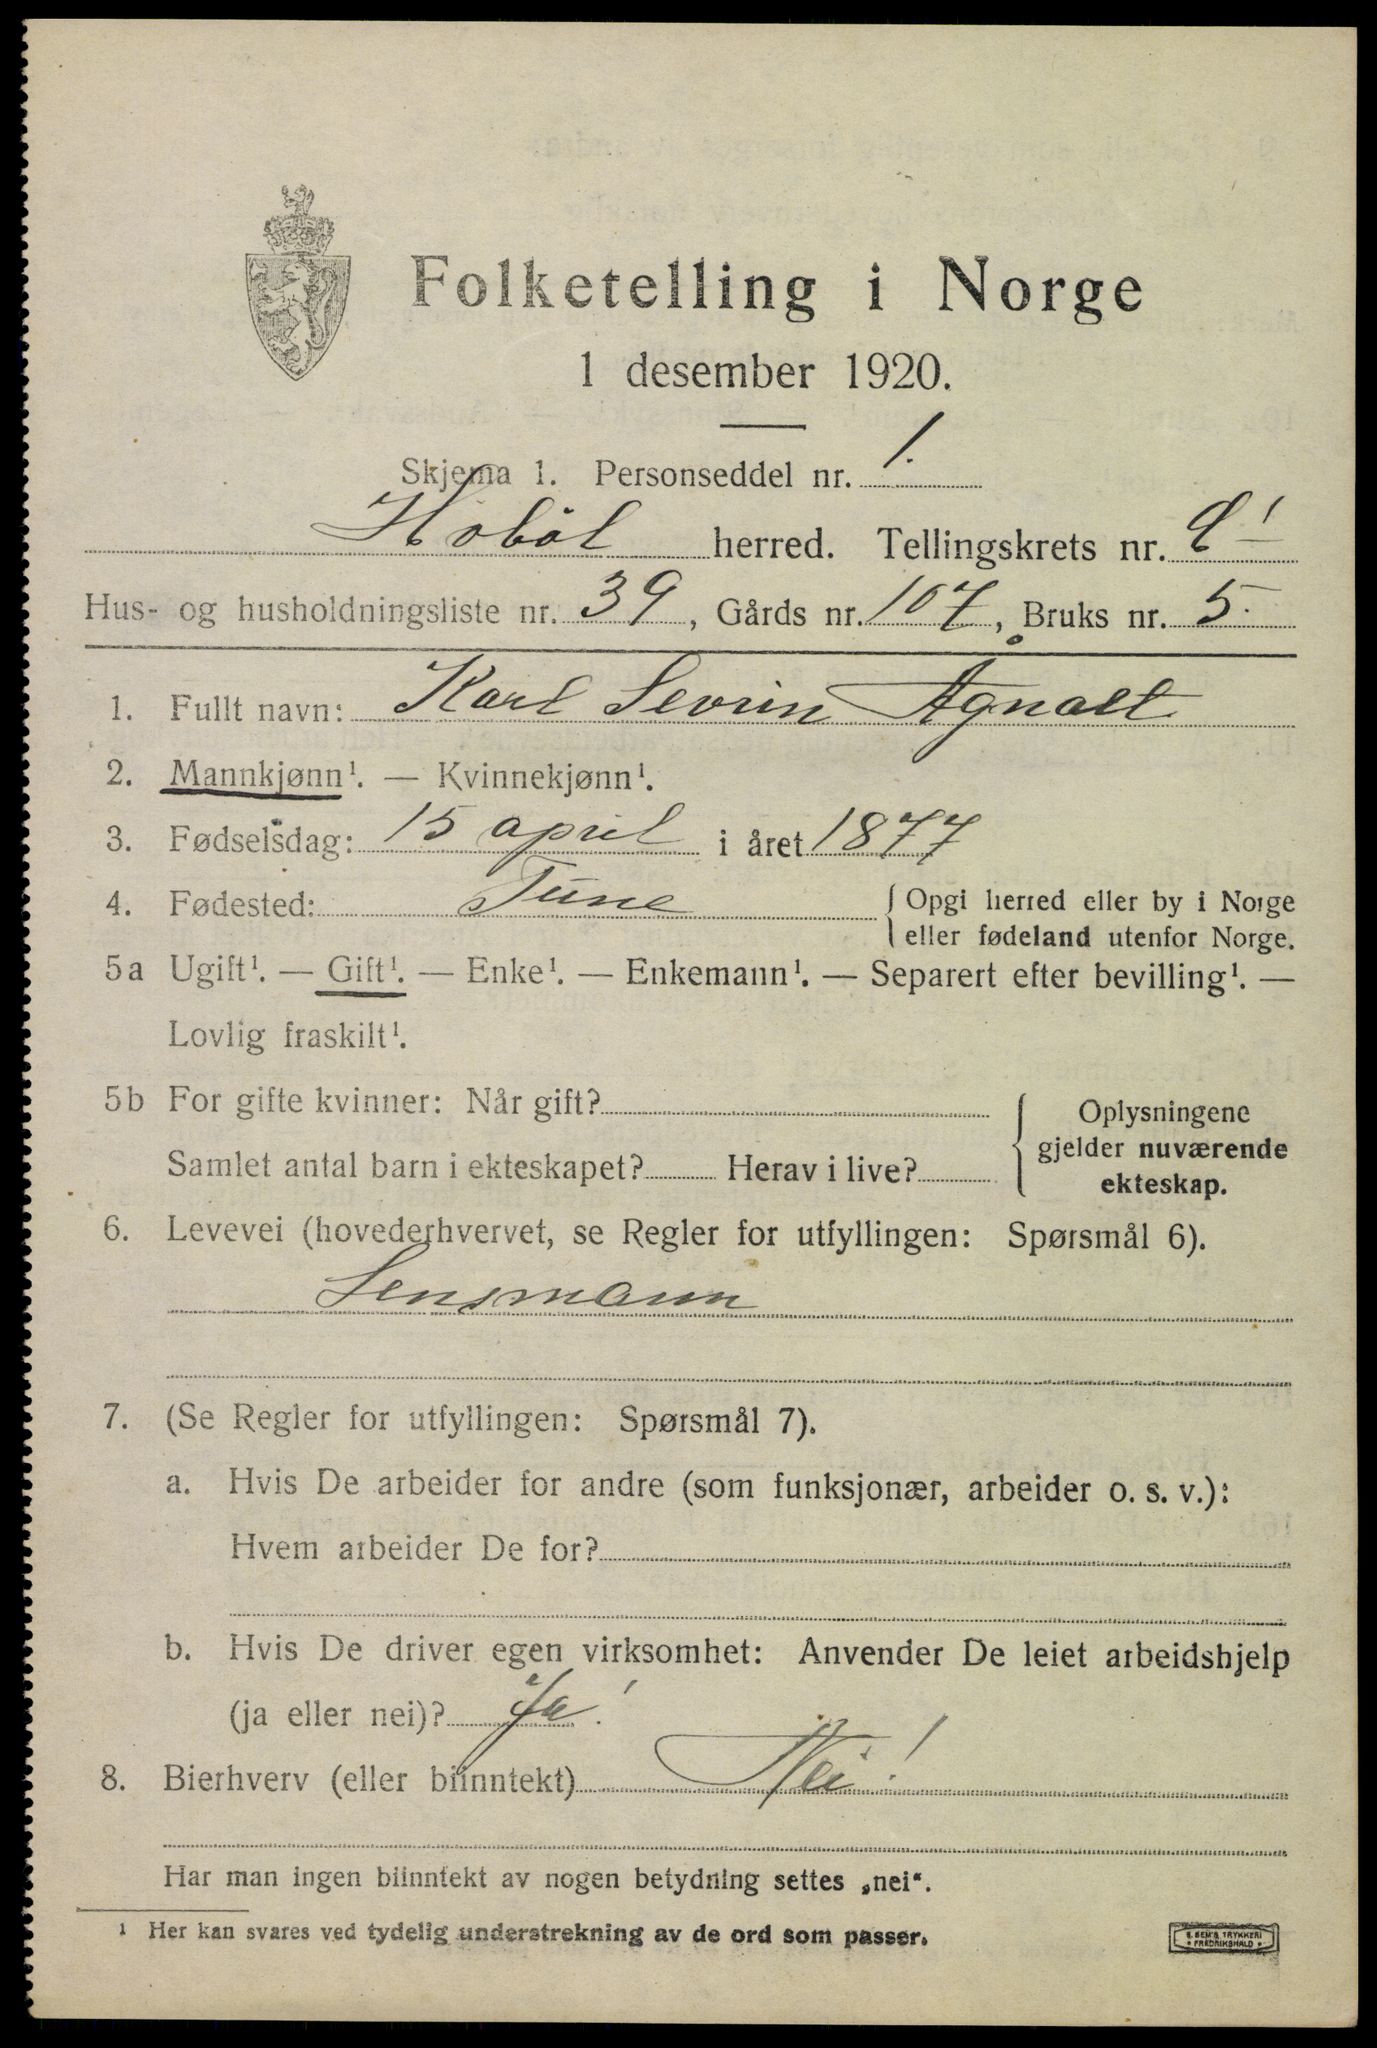 Folketelling i Norge
1 desember 1920.
Skjema 1. Personseddel nr. 1.
Hobøl herred. Tellingskrets nr.
Hus- og husholdningsliste nr. 39, Gårds nr. 107, Bruks nr. 5.
1. Fullt navn: Karl Sevrin Ågnalt
2. Mannkjønn¹. — Kvinnekjønn¹.
3. Fødselsdag: 15 april i året 1877
4. Fødested: Tune { Opgi herred eller by i Norge
eller fødeland utenfor Norge.
5a Ugift¹. — Gift¹. — Enke¹. — Enkemann¹. — Separert efter bevilling¹. —
Lovlig fraskilt¹.
5b For gifte kvinner: Når gift?
Samlet antal barn i ekteskapet? Herav i live?
{ Oplysningene
gjelder nuværende
ekteskap.
6. Levevei (hovederhvervet, se Regler for utfyllingen: Spørsmål 6).
Lensmann
7. (Se Regler for utfyllingen: Spørsmål 7).
a. Hvis De arbeider for andre (som funksjonær, arbeider o. s. v.):
Hvem arbeider De for?
b. Hvis De driver egen virksomhet: Anvender De leiet arbeidshjelp
(ja eller nei)? Ja!
8. Bierhverv (eller biinntekt) Nei!
Har man ingen biinntekt av nogen betydning settes „nei“.
¹ Her kan svares ved tydelig understrekning av de ord som passer.
E. SEM'S TRYKKERI
FREDRIKSHALD